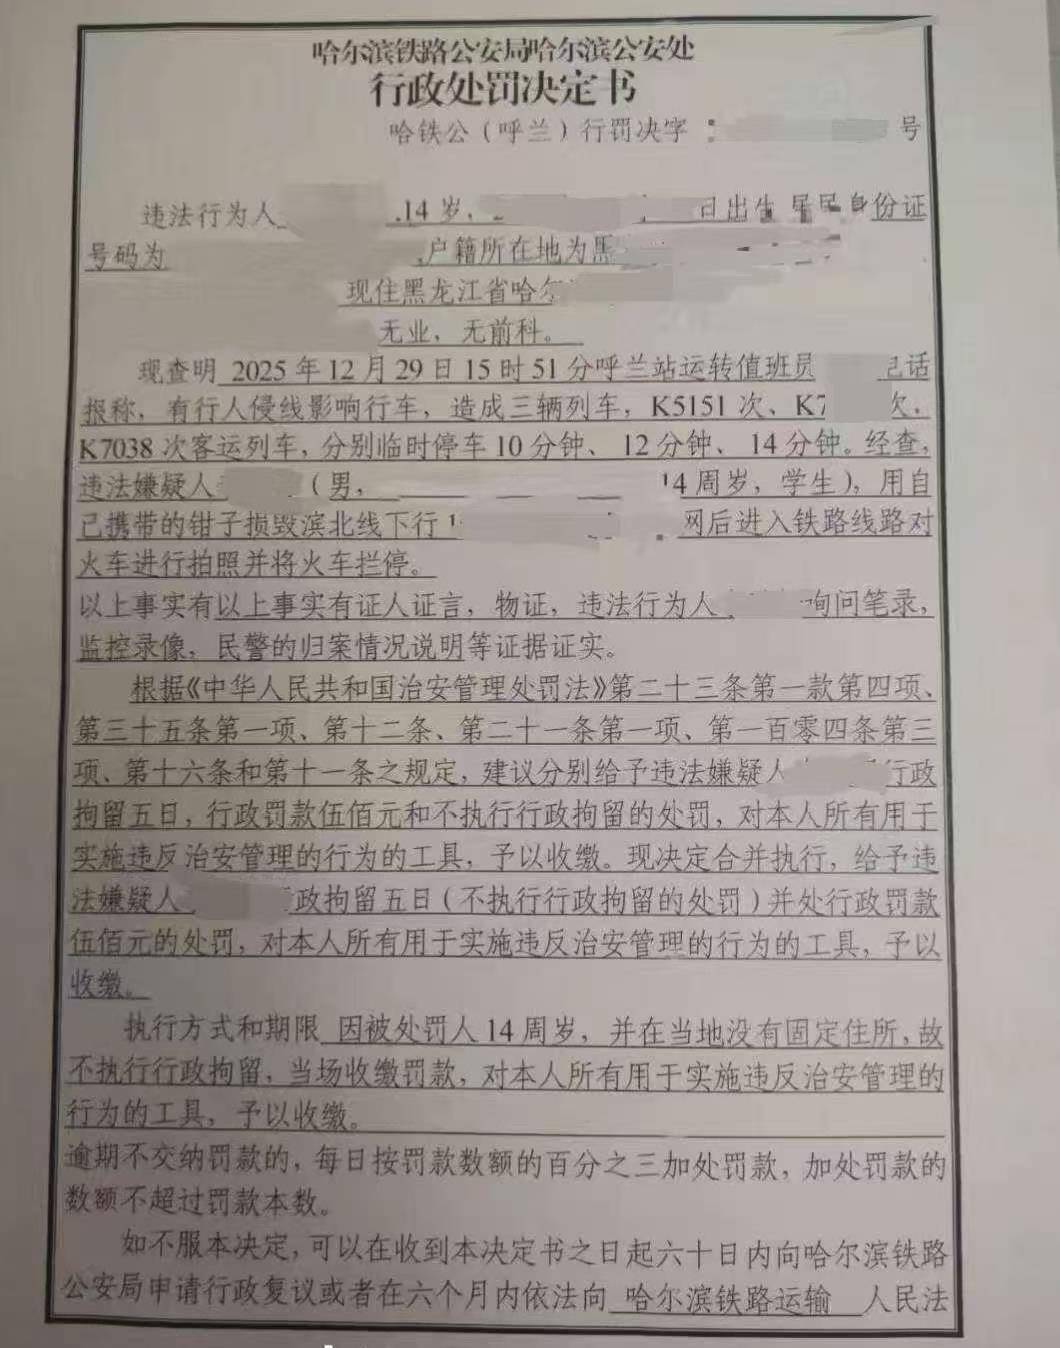 哈尔滨铁路公安局哈尔滨公安处
行政处罚决定书
哈铁公（呼兰）行罚决字 号
违法行为人 14岁， 日出生 居民身份证
号码为 ，户籍所在地为黑
现住黑龙江省哈尔
无业，无前科。
现查明 2025年12月29日15时51分呼兰站运转值班员 电话
报称，有行人侵线影响行车，造成三辆列车，K5151次、K7 次、
K7038次客运列车，分别临时停车10分钟、12分钟、14分钟。经查，
违法嫌疑人 （男， 14周岁，学生），用自
己携带的钳子损毁滨北线下行1 网后进入铁路线路对
火车进行拍照并将火车拦停。
以上事实有以上事实有证人证言，物证，违法行为人 询问笔录，
监控录像，民警的归案情况说明等证据证实。
根据《中华人民共和国治安管理处罚法》第二十三条第一款第四项、
第三十五条第一项、第十二条、第二十一条第一项、第一百零四条第三
项、第十六条和第十一条之规定，建议分别给予违法嫌疑人 行政
拘留五日，行政罚款伍佰元和不执行行政拘留的处罚，对本人所有用于
实施违反治安管理的行为的工具，予以收缴。现决定合并执行，给予违
法嫌疑人 政拘留五日（不执行行政拘留的处罚）并处行政罚款
伍佰元的处罚，对本人所有用于实施违反治安管理的行为的工具，予以
收缴。
执行方式和期限 因被处罚人14周岁，并在当地没有固定住所，故
不执行行政拘留，当场收缴罚款，对本人所有用于实施违反治安管理的
行为的工具，予以收缴。
逾期不交纳罚款的，每日按罚款数额的百分之三加处罚款，加处罚款的
数额不超过罚款本数。
如不服本决定，可以在收到本决定书之日起六十日内向哈尔滨铁路
公安局申请行政复议或者在六个月内依法向 哈尔滨铁路运输 人民法